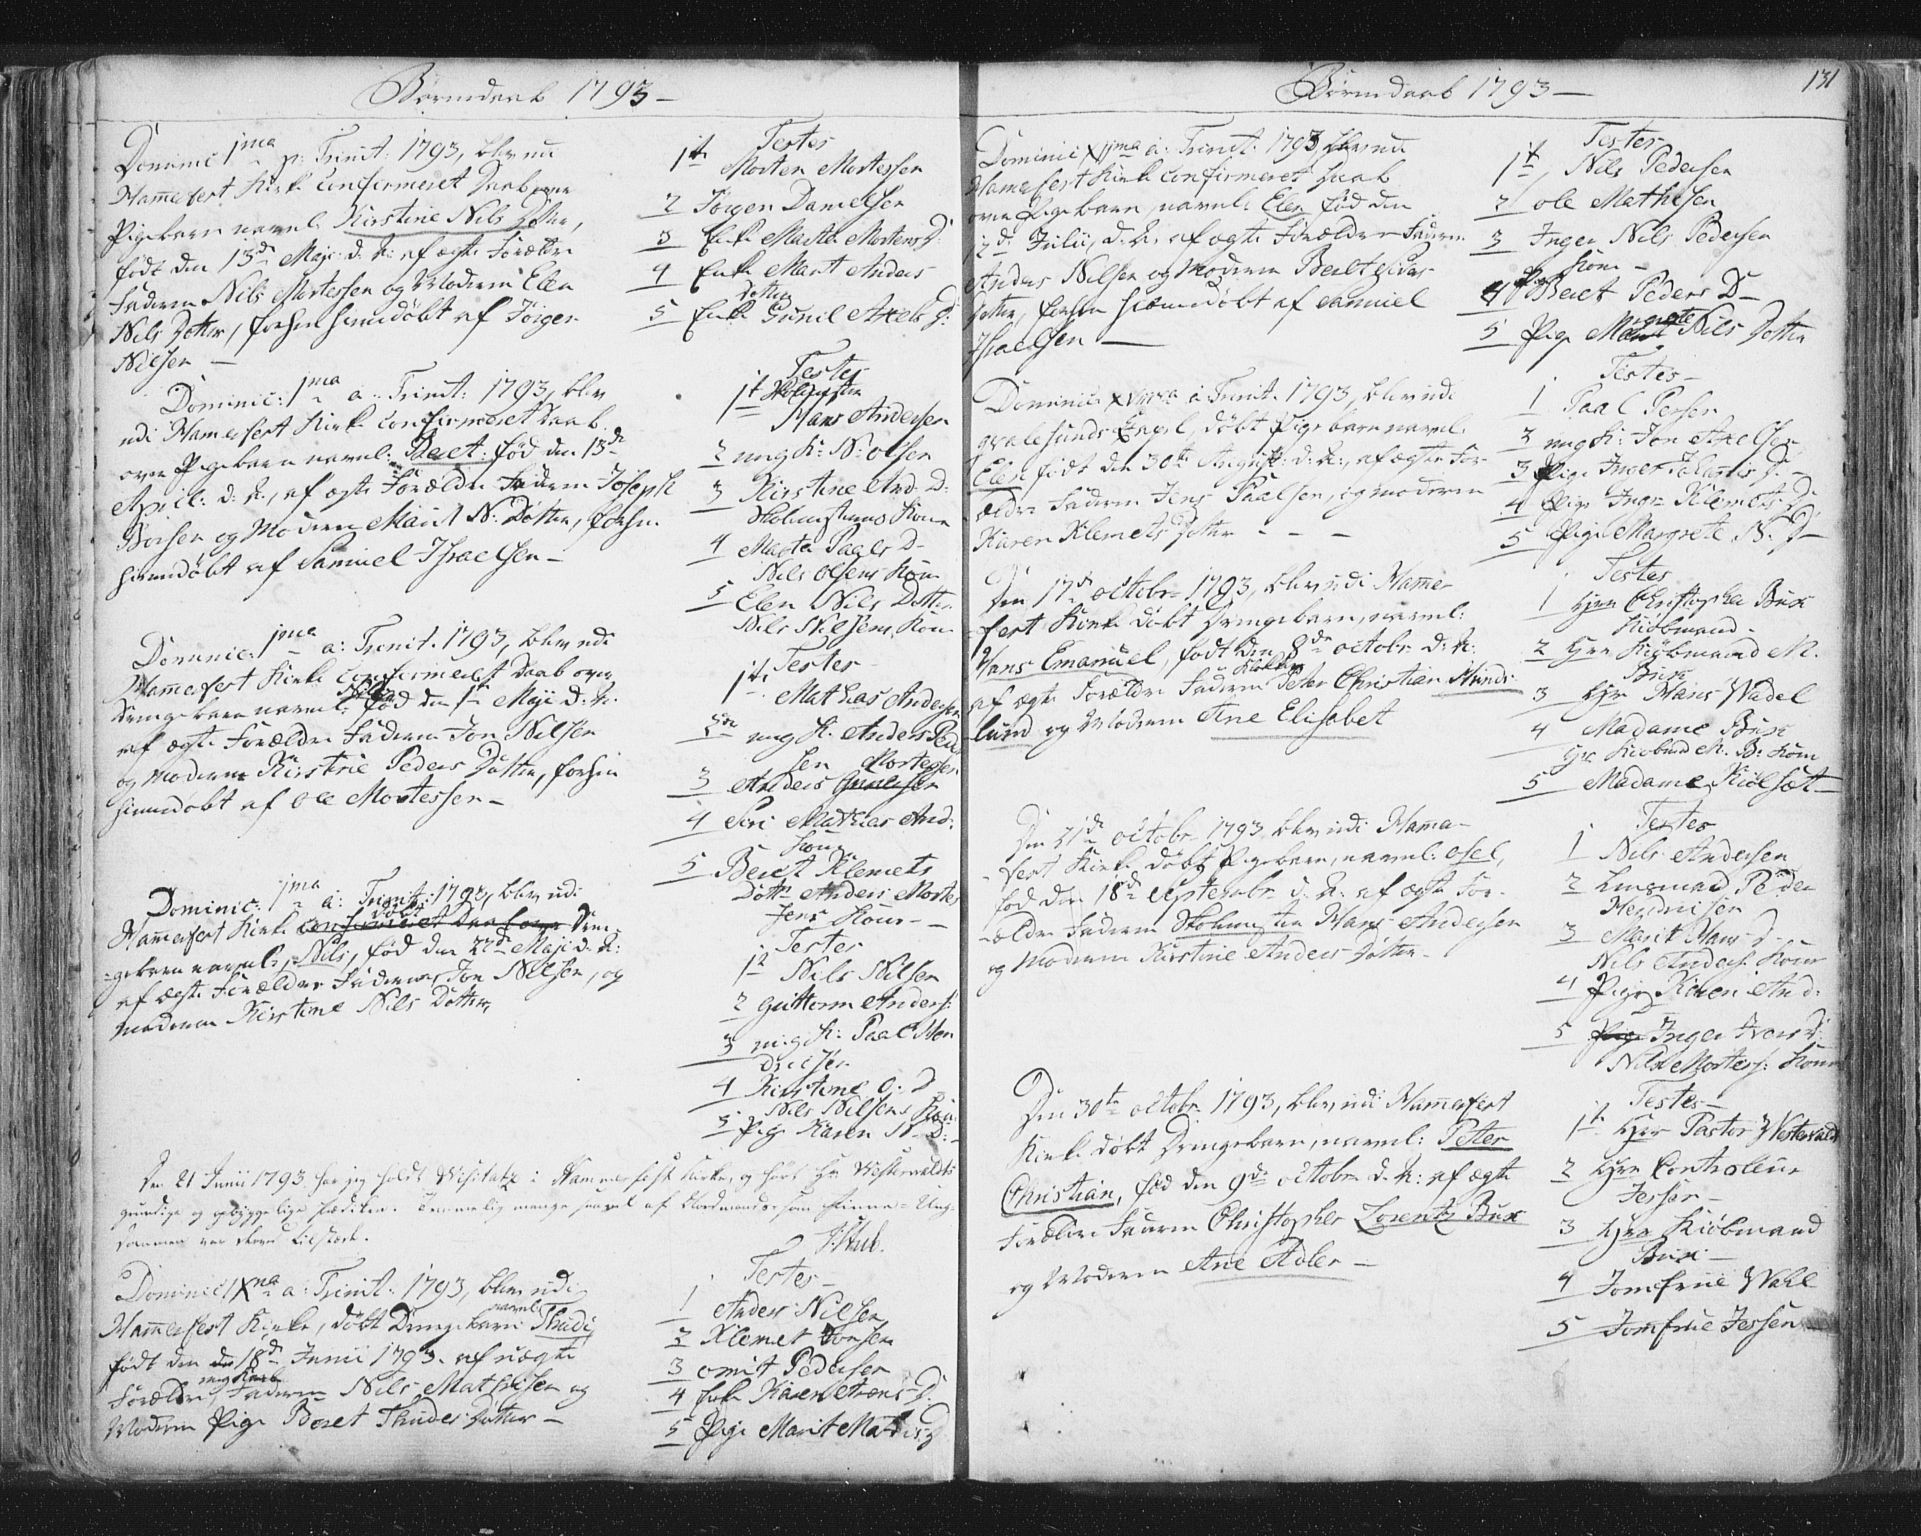 Børnedaab 1793 —
Dominic: 1ma p: Trinit: 1793, blev udi
Hammerfest Kirke Confirmeret Daab over
Pigebarn navnl: Kirstine Nils Dotter,
født den 13de Maji d. A: af ægte Forældre
Faderen Nils Mortessen og Moderen Elen
Nils Dotter, forhen hiemdøbt af Jørgen
Nielsen —
Testes
1te Morten Mortessen
2 Jørgen Danielsen
3 Enke Marte Mortens D:
4 Enke Marit Anders
Dotter
5 Enke Gunil Axels D:
Dominic: 1ma a: Trinit: 1793, blev
udi Hamerfest Kirke Confirmeret Daab
over Pigebarn navnl: Beret: fød den 13de
April: d: A:, af ægte Forældre Faderen Joseph
Boisen og Moderen Marit N: Dotter, forhen
hiemdøbt af Samuel Israelsen —
Testes
1t Skolemester
Hans Andersen
2 ung K: N: Olsen
3 Kirstine And: D:
Skolemesterens Kone
4 Marta Paals D-
Nils Olsens Kone
5 Elen Nils Dotter
Nils Nilsens Kone
Dominic: 1ma a: Trinit. 1793, blev udi
Hammerfest Kirke Confirmeret Daab over
Drengebarn navnl: Nils fød den 1te Maji d. A:
af ægte Forældre Faderen Jon Nilsen
og Moderen Kirstine Peders Dotter, forhen
hiemdøbt af Ole Mortessen —
Testes
1te Mathias Andersen
2de ung K. Anders Peder
sen
3 Anders Mortessen
4 Siri Mathias And:
Kone
5 Beret Klemets
Dotter Anders Mortes
sens Kone —
Dominic: 1ma a: Trinit: 1793, blev udi
Hammerfest Kirke døbt Dren-
gebarn navnl: Nils, fød den 22de Maji d. A:
af ægte Forældre Faderen Jon Nilsen, og
moderen Kirstine Nils Dotter,
Testes
1te Nils Nilsen
2 Guttorm Anders:
3 ung K: Paal Hen
dricsen
4 Kirstine O: D
Nils Nilsens Kone
5 Pige Karen N- D:
Den 21 Junii 1793 har jeg holdt Visitatz i Hammerfest Kirke, og hørt Hr Westervaldts
grundige og opbyggelige Prædiken. Temmelig mange saavel af Nordmænd som Finne-Ung-
dommen var tilstæde.
P: Kub.
Dominic IXna a: Trinit: 1793, blev udi
Hammerfest Kirke, døbt Drengebarn navnl: Thudi
født den 18de Junii 1793. af uægte
Forældre, Faderen ung Karl Nils Mathisen og
Moderen Pige Beret Thudes Dotter —
Testes —
1 Anders Nilsen
2 Klemet Jonsen
3 Omit Pedersen
4 Enke Karen Arens D.
5 Pige Marit Mathis D
131
Børnedaab 1793 —
Dominic XIma a: Trinit: 1793 blev udi
Hamerfest Kirke Confirmeret Daab
over Pigebarn, navnl: Elen fød den
2de Julii, d. A: af ægte Forældre Faderen
Anders Nilsen og Moderen Berit Peders
Dotter, forhen hiemdøbt af Samuel
Israelsen —
Testes
1t Nils Pedersen
2 Ole Mathisen
3 Inger Nils Pedersen
Kone —
4 Pige Beret Peders D —
5 Pige Margrete Nils Dotter
Dominic: XVma a Trinit. 1793, blev udi
Qvalesunds Capel, døbt Pigebarn navnl:
Elen født den 30te August: d: A:, af ægte For-
ældre Faderen Jens Paalsen, og Moderen
Karen Klemets Dotter - - -
Testes —
1 Paal Persen
2 ung K: Jon Axelsen
3 Pige Inger D: —
4 Pige Inger Klemets D.
5 Pige Margrete N. D-
Den 17de Octobr- 1793, blev udi Hamer
fest Kirke døbt Drengebarn, navnl:
Hans Emanuel, født den 8de Octobr d: A:
af ægte Forældre Faderen Klokker Peter Christian Hunds-
lund og Moderen Ane Elisabet
Testes
1 Herr Christopher Bux
Kiøbmand -
2 Herr Kiøbmand M.
Bux
3 Hr Hans Wadel
4 Madame Bux
Hr Kiøbmd M. B: Kone
5 Madame Kiølset
Den 21de Octobr- 1793 blev udi Hamer-
fest Kirke døbt Pigebarn, navnl: Osel,
fød den 18de Septembr d. A: af ægte For-
ældre Faderen Skolemester Hans Andersen
og Moderen Kirstine Anders Dotter —
Testes
1 Nils Andersen
2 Lensmand Peder
Hendricsen
3 Marit Hans D
Nils Anders: Kone
4 Pige Karen And:
5 Inger Ivers D:
Nils Mortens: Kone
Den 30te Octobr- 1793, blev udi Hammerfest
Kirke døbt Drengebarn, navnl: Peter
Christian, fød den 9de Octobr d. A: af ægte
Forældre Faderen Christopher Lorentz Bux
og Moderen Ane Adler —
Testes —
1te Herr Pastor Westervaldt
2 Herr Controleur
Jessen —
3 Herr Kiøbmand
Bux —
4 Jomfrue Wahl
5 Jomfrue Jessen